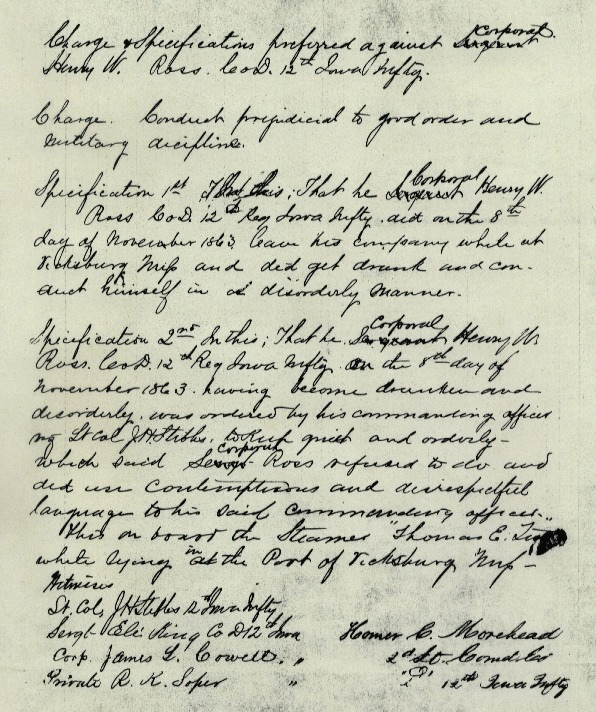 Charge & Specifications preferred against Sergeant Corporal
Henry W. Ross. Co D. 12th Iowa Infty.
Charge. Conduct prejudicial to good order and
Military dicipline.
Specification 1st In this; That he Sergeant Corporal Henry W.
Ross Co D. 12th Reg Iowa Infty. did on the 8th
day of November 1863 leave his company while at
Vicksburg Miss and did get drunk and con-
duct himself in a disorderly manner.
Specification 2nd In this; That he Sergeant Corporal Henry W.
Ross. Co D. 12th Reg Iowa Infty. On the 8th day of
November 1863. having become drunken and
disorderly. was ordered by his commanding officer
Lt Col J H Stibbs, to keep quiet and orderly-
which said Corporal Ross refused to do and
did use contemptuous and disrespectful
language to his said commanding officer.
This on board the Steamer "Thomas E.
while lying in at the Port of Vicksburg Miss-
Witnesses
Lt. Col. J H Stibbs 12th Iowa Infty,
Sergt Eli King Co D 12th Iowa
Corp. James L. Cowell. "
Private R. K. Soper "
Homer C. Morehead
2d Lt. Comdg Co
"D" 12th Iowa Infty